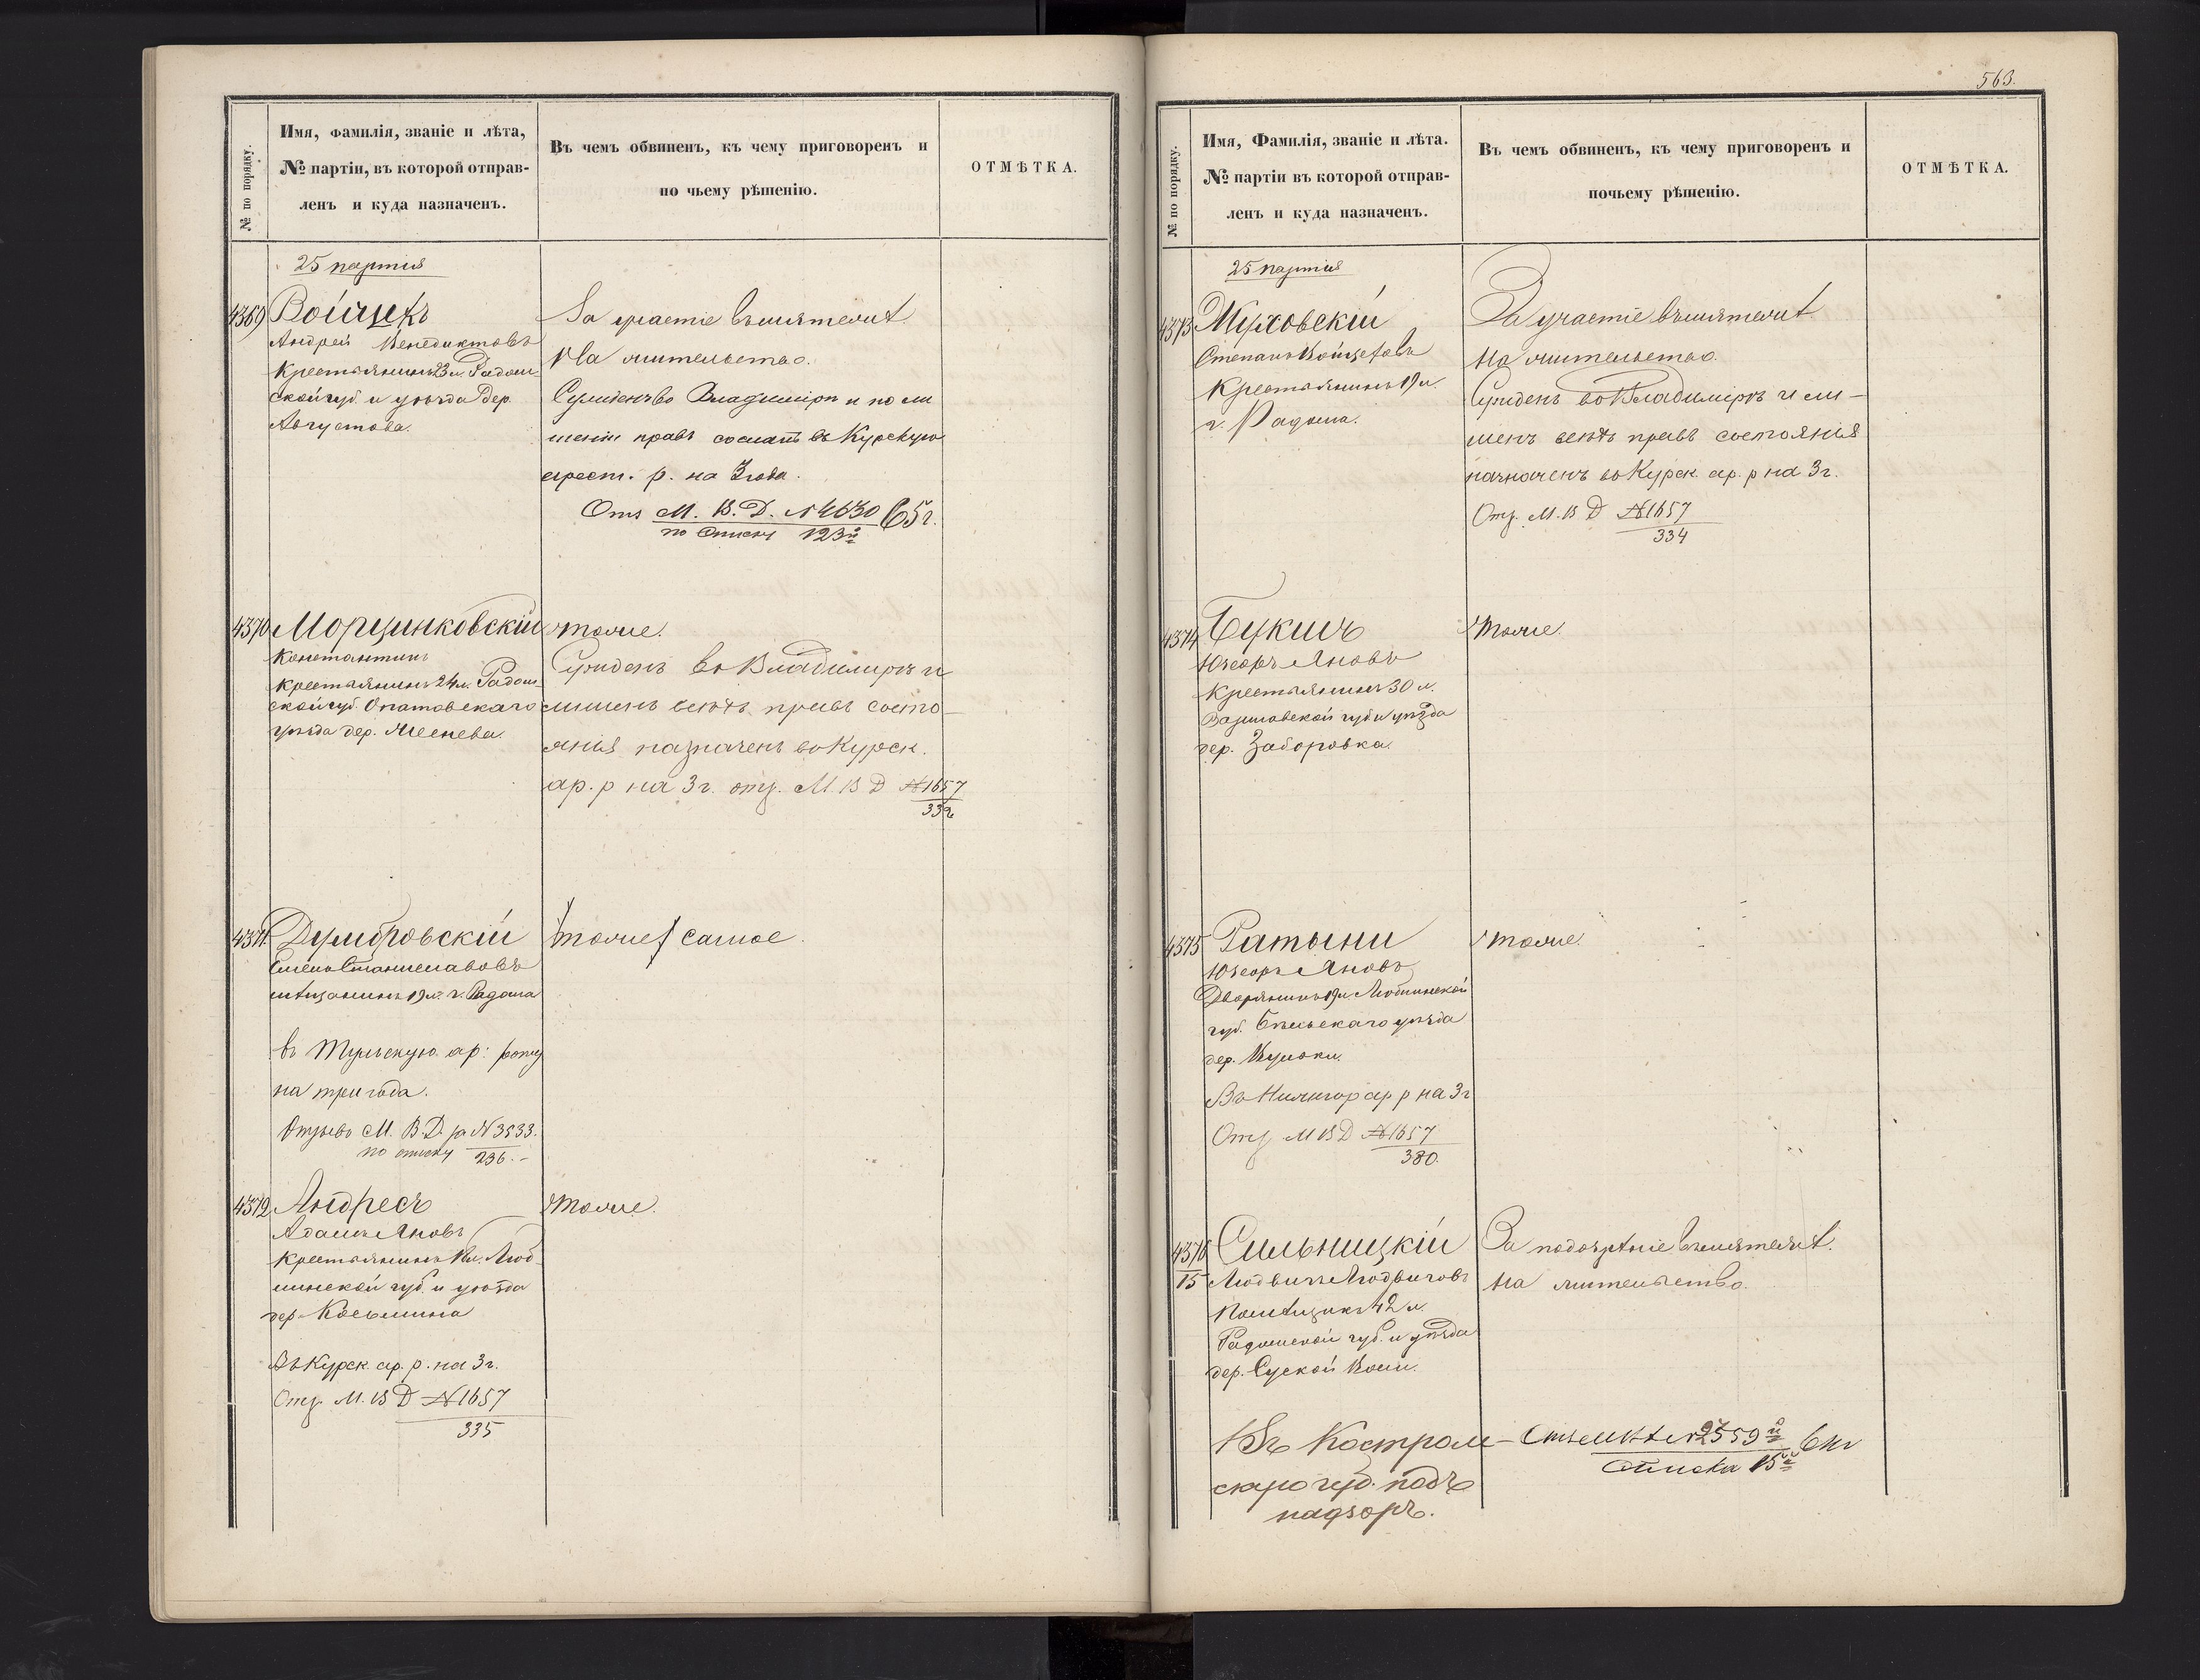 563.
№ по порядку.
Имя, фамилія, званіе и лѣта,
№ партіи, въ которой отправ-
ленъ и куда назначенъ.
Въ чемъ обвиненъ, къ чему приговоренъ и
по чьему рѣшенію.
ОТМѢТКА.
25 партія
4369 Войцикъ
Андрей Бенедиктовъ
крестьянинъ 23 л. Радом-
ской губ. и уѣзда дер.
Августова.
За участіе въ мятежѣ
На жительство.
Сужденъ во Владимірѣ и по ли
шеніи правъ сосланъ въ Курскую
арест. р. на 3 года.
Отз М. В. Д. № 4630 65 г.
по списку 123й
4370 Морцинковскій
Константинъ
крестьянинъ 24 л. Радом-
ской губ. Опатовскаго
уѣзда дер.
тоже.
Сужденъ во Владимірѣ и
лишенъ всѣхъ правъ состо-
янія назначенъ въ Курск.
ар. р на 3 г. отз. М. В Д №1657
332
4371. Думбровскій
Станиславовъ
мѣщанинъ 19 л. г. Радома
въ Тульскую ар: роту
на три года.
Отзывъ М. В. Д. за №3533.
по списку 236.-
тоже самое.
4372 Андресъ
Адамъ Яновъ
крестьянинъ Люб-
линской губ. и уѣзда
дер.
Въ Курск. ар. р. на 3 г.
Отз. М. В Д №1657
335
тоже.
№ по порядку.
Имя, Фамилія, званіе и лѣта.
№ партіи въ которой отправ-
ленъ и куда назначенъ.
Въ чемъ обвиненъ, къ чему приговоренъ и
почьему рѣшенію.
ОТМѢТКА.
25 партія
4373 Муховскій
Степанъ Войцеховъ
Крестьянинъ 19 л.
г. Радома.
За участіе въ мятежѣ
На жительство.
Сужденъ во Владимірѣ и ли-
шенъ всѣхъ правъ состоянія
назначенъ въ Курск. ар. р на 3 г.
Отз. М. В Д №1657
334
4374 Букичъ
Юзефъ Яновъ
Крестьянинъ 30 л.
Варшавской губ и уѣзда
дер. Заборовка.
тоже.
4375 Ратыни
Юзефъ Яновъ
Дворянинъ 19 л. Люблинской
губ. Бѣльскаго уѣзда
дер.
Въ Нижегор ар р на 3 г
Отз М В Д №1657
380.
тоже.
4376
15
Сильницкій
Людвигъ Людвиговъ
Помѣщикъ 42 л.
Радомской губ. и уѣзда
дер. Суской Воли.
Въ Костром-
скую губ. подъ
надзоръ.
За подозрѣніе въ мятежѣ.
На жительство.
№ 2559й
списка 15й